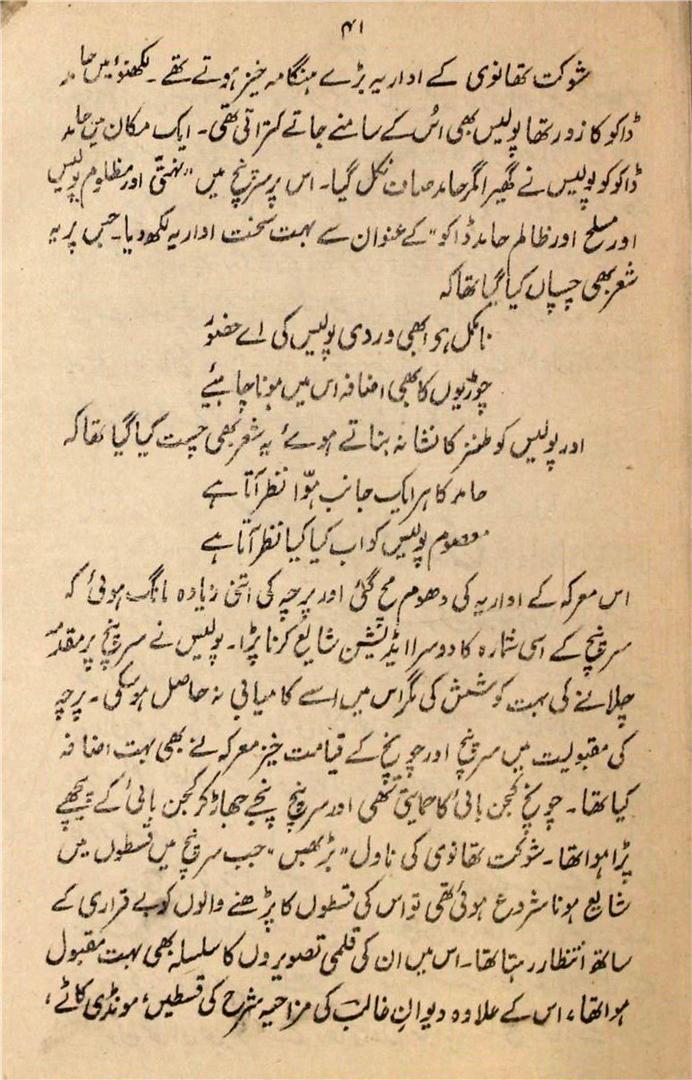 ۴۱
شوکت تھانوی کے اداریہ بڑے ہنگامہ خیز ہوتے تھے۔ لکھنؤ میں حامد
ڈاکو کا زور تھا پولیس بھی اُس کے سامنے جاتے کتراتی تھی۔ ایک مکان میں حامد
ڈاکو کو پولیس نے گھیرا مگر حامد صاف نکل گیا۔ اس پر سرپنچ میں "نہتّی اور مظلوم پولیس
اور مسلح اور ظالم حامد ڈاکو" کے عنوان سے بہت سخت اداریہ لکھ دیا۔ جس پر یہ
شعر بھی چسپاں کیا گیا تھا کہ
نامکمل ہے ابھی وردی پولیس کی اے حضور
چوڑیوں کا بھی اضافہ اس میں ہونا چاہیئے
اور پولیس کو طنز کا نشانہ بناتے ہوئے یہ شعر بھی چست کیا گیا تھا کہ
حامد کا ہر ایک جانب ہوّا نظر آتا ہے
معصوم پولیس کو اب کیا کیا نظر آتا ہے
اس معرکہ کے اداریہ کی دھوم مچ گئی اور پرچہ کی اتنی زیادہ مانگ ہوئی کہ
سرپنچ کے اسی شمارہ کا دوسرا ایڈیشن شایع کرنا پڑا۔ پولیس نے سرپنچ پر مقدمہ
چلانے کی بہت کوشش کی مگر اس میں اسے کامیابی نہ حاصل ہوسکی۔ پرچہ
کی مقبولیت میں سرپنچ اور چونچ کے قیامت خیز معرکہ نے بھی بہت اضافہ
کیا تھا۔ چونچ کجن بائی کا حمایتی تھی اور سرپنچ پنجے جھاڑ کر کجن بائی کے پیچھے
پڑا ہوا تھا۔ شوکت تھانوی کی ناول "بڑبھس" جب سرپنچ میں قسطوں میں
شایع ہونا شروع ہوئی تھی تو اس کی قسطوں کا پڑھنے والوں کو بے قراری کے
ساتھ انتظار رہتا تھا۔ اس میں ان کی قلمی تصویروں کا سلسلہ بھی بہت مقبول
ہوا تھا، اس کے علاوہ دیوانِ غالب کی مزاحیہ شرح کی قسطیں، مونڈی کاٹے،